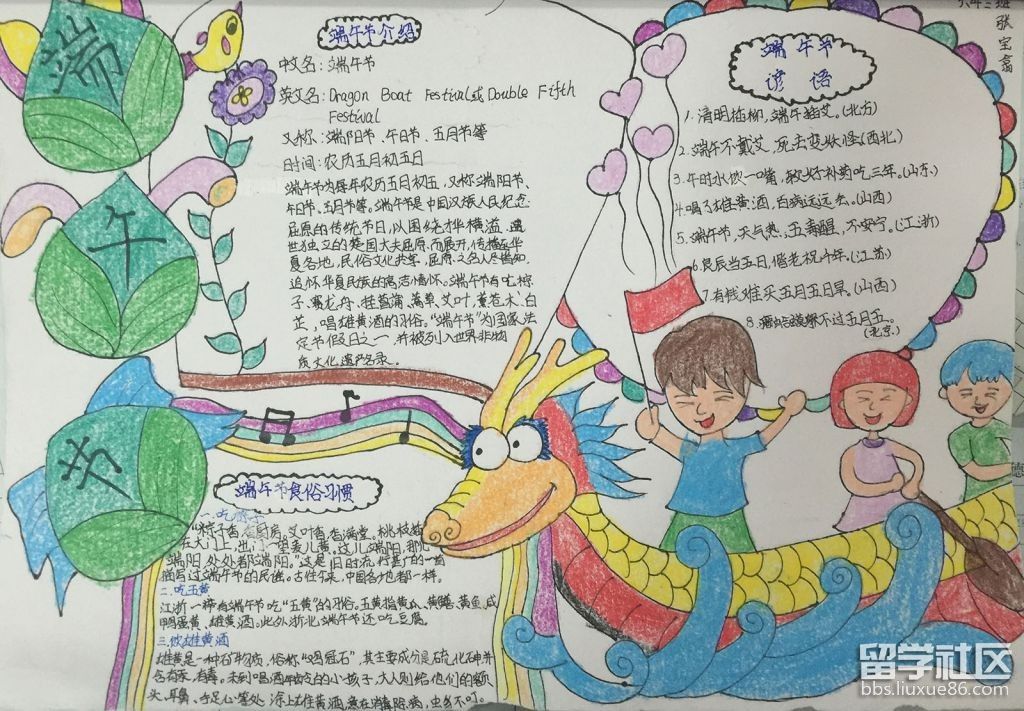 六年三班
张宝
端
午
节
端午节介绍
中文名：端午节
英文名：Dragon Boat Festival或Double Fifth
Festival
又称：端阳节、午日节、五月节等
时间：农历五月初五日
端午节为每年农历五月初五，又称端阳节、
午日节、五月节等。端午节是中国汉族人民纪念
屈原的传统节日，以围绕才华横溢、遗
世独立的楚国大夫屈原而展开，传播至华
夏各地，民俗文化共享，屈原之名人尽皆知，
追怀华夏民族的高洁情怀。端午节有吃粽
子，赛龙舟、挂菖蒲、蒿草、艾叶，薰苍术、白
芷，喝雄黄酒的习俗。“端午节”为国家法
定节假日之一，并被列入世界非物
质文化遗产名录。
端午节
谚语
1.清明插柳，端午插艾。(北方)
2.端午不戴艾，死去变妖怪(西北)
3.午时水饮一嘴，较好补药吃三年。(山东)
4.喝了雄黄酒，百病远远丢。(山西)
5.端午节，天气热，五毒醒，不安宁。(江浙)
6.良辰当五日，偕老祝千年。(江苏)
7.有钱难买五月五日旱。(山西)
8.癞蛤蟆躲不过五月五。
(北京)
端午节食俗习惯
一.吃粽子
“粽子香，香厨房。艾叶香，香满堂。桃枝插
在大门上，出门一望麦儿黄。这儿端阳，那儿
端阳，处处都端阳。”这是旧时流行甚广的一首
描写过端午节的民谣。古往今来，中国各地都一样。
二.吃五黄
江浙一带有端午节吃“五黄”的习俗。五黄指黄瓜、黄鳝、黄鱼、咸
鸭蛋黄、雄黄酒。此外浙北端午节还吃豆腐。
三.饮雄黄酒
雄黄是一种矿物质，俗称“鸡冠石”，其主要成分是硫化砷并
含有汞，有毒。未到喝酒年龄的小孩子，大人则给他们的额
头、耳鼻、手足心等处涂上雄黄酒，意在消毒除病，虫豸不叮。
德
留学社区
bbs.liuxue86.com